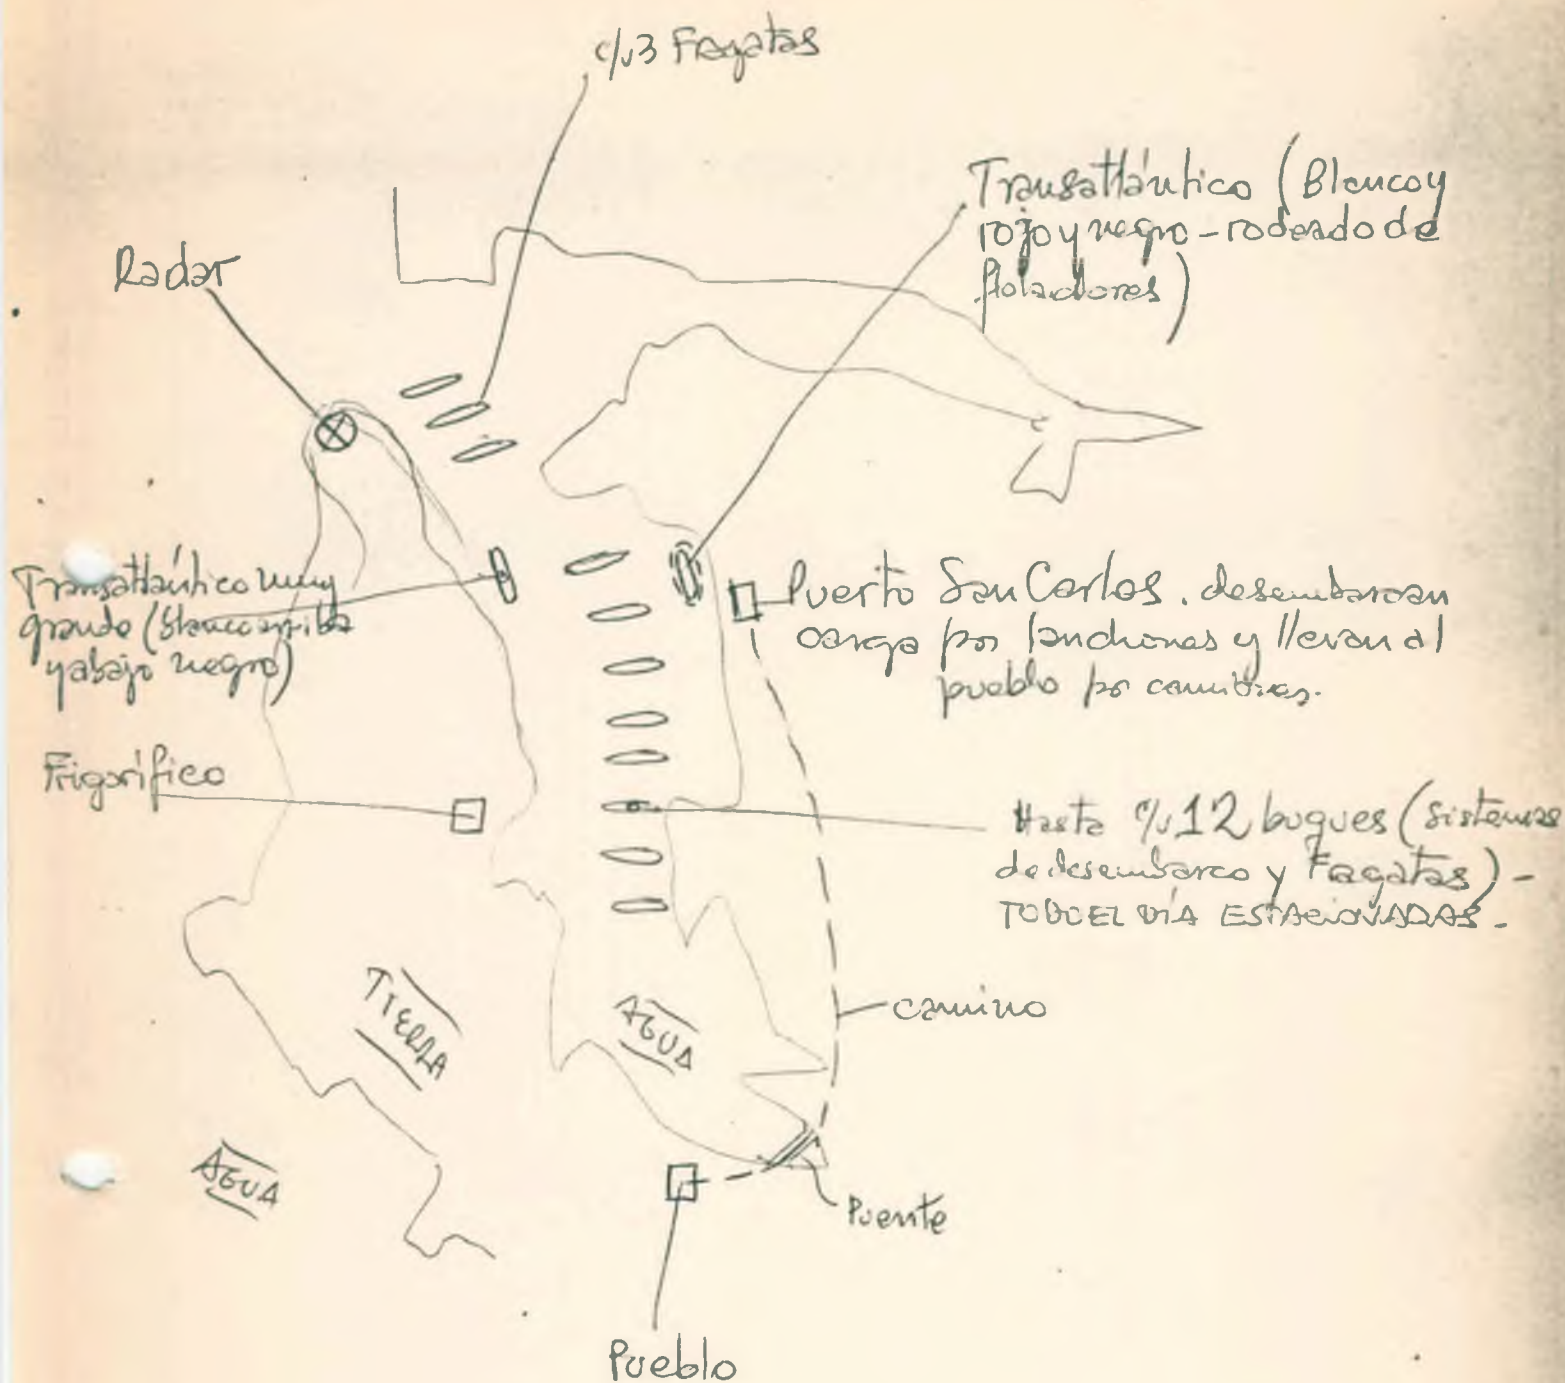 c/u 3 Fragatas
Transatlántico (Blanco y
rojo y negro - rodeado de
flotadores)
Radar
Transatlántico muy
grande (blanco arriba
y abajo negro)
Puerto San Carlos. desembarcan
carga por lanchones y llevan al
pueblo por camiones.
Frigorífico
Hasta c/u 12 buques (sistemas
de desembarco y Fragatas) -
TODO EL DÍA ESTACIONADAS -
TIERRA
AGUA
camino
AGUA
Puente
Pueblo